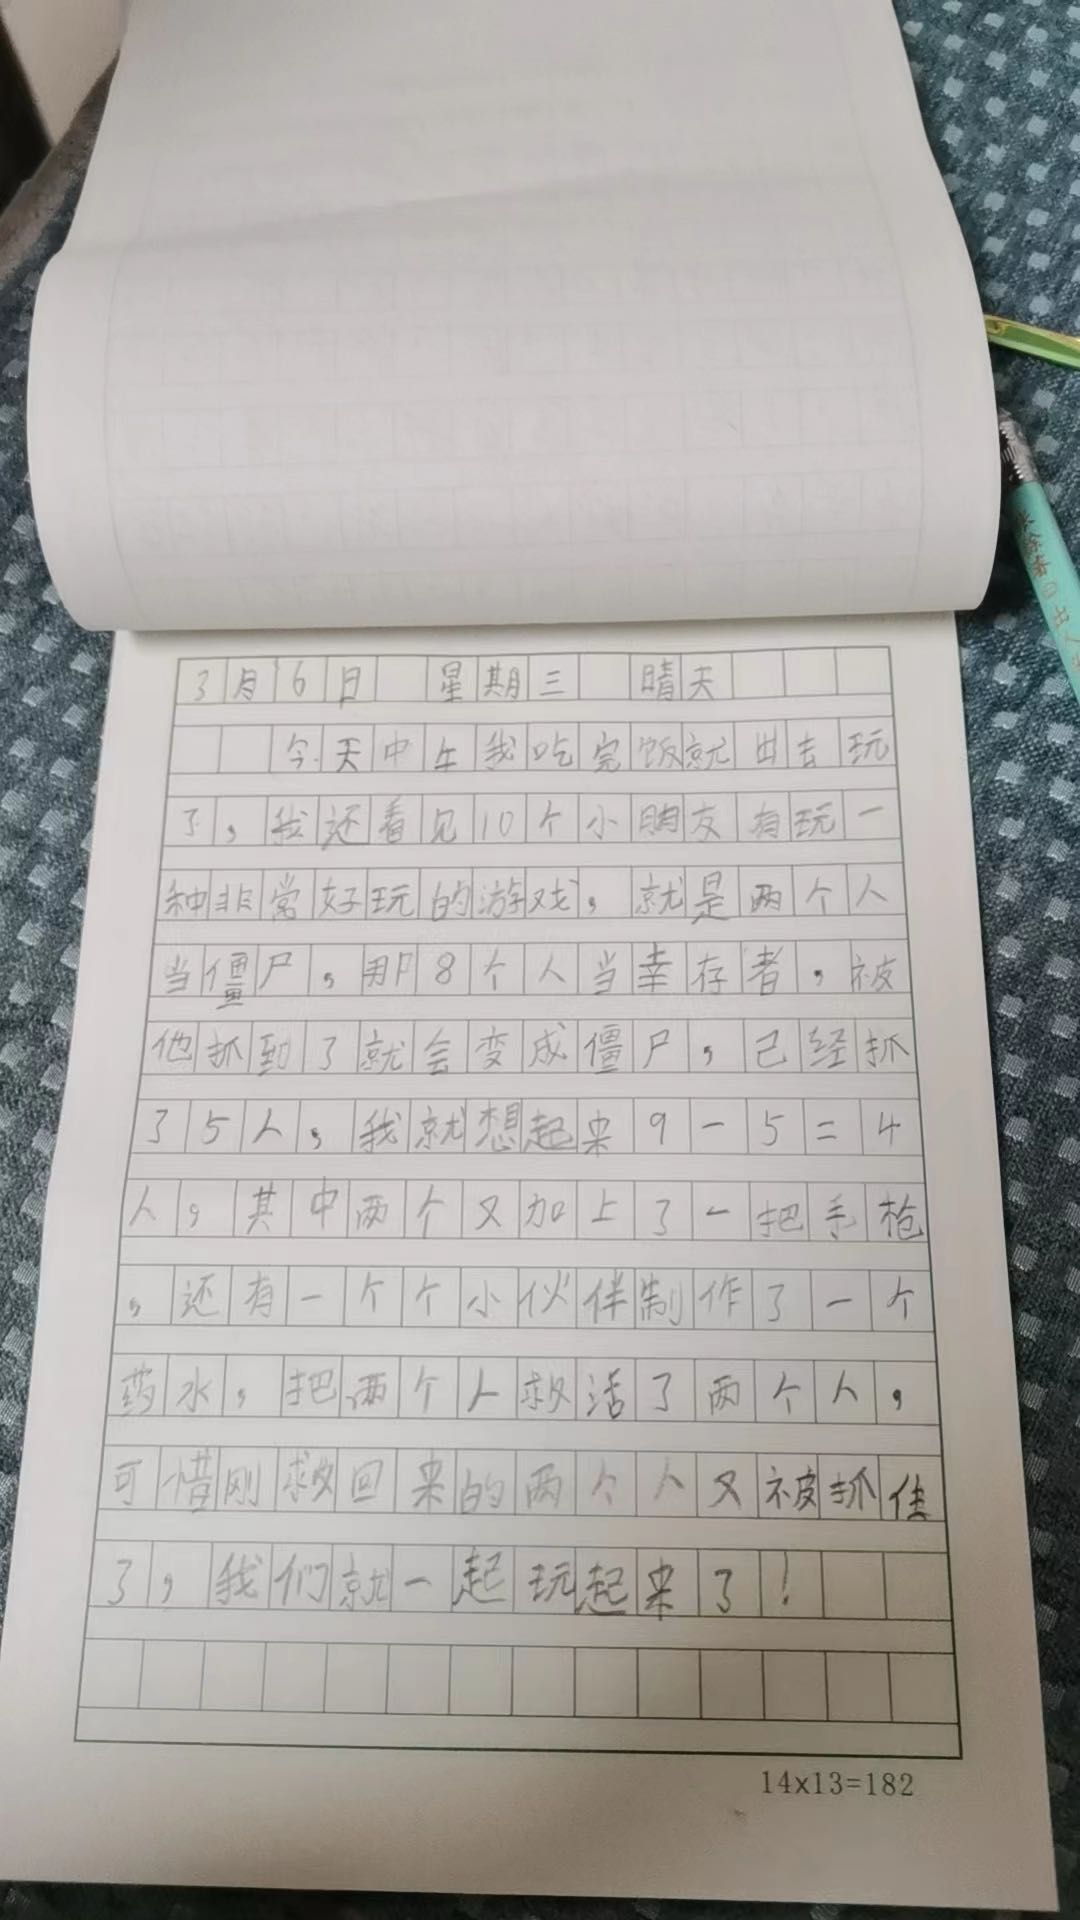 3月6日 星期三 晴天
今天中午我吃完饭就出去玩
了，我还看见10个小朋友有玩一
种非常好玩的游戏，就是两个人
当僵尸，那8个人当幸存者，被
他抓到了就会变成僵尸，已经抓
了5人，我就想起来9-5=4
人，其中两个又加上了一把手枪
，还有一个个小伙伴制作了一个
药水，把两个人救活了两个人，
可惜刚救回来的两个人又被抓住
了，我们就一起玩起来了！
14x13=182